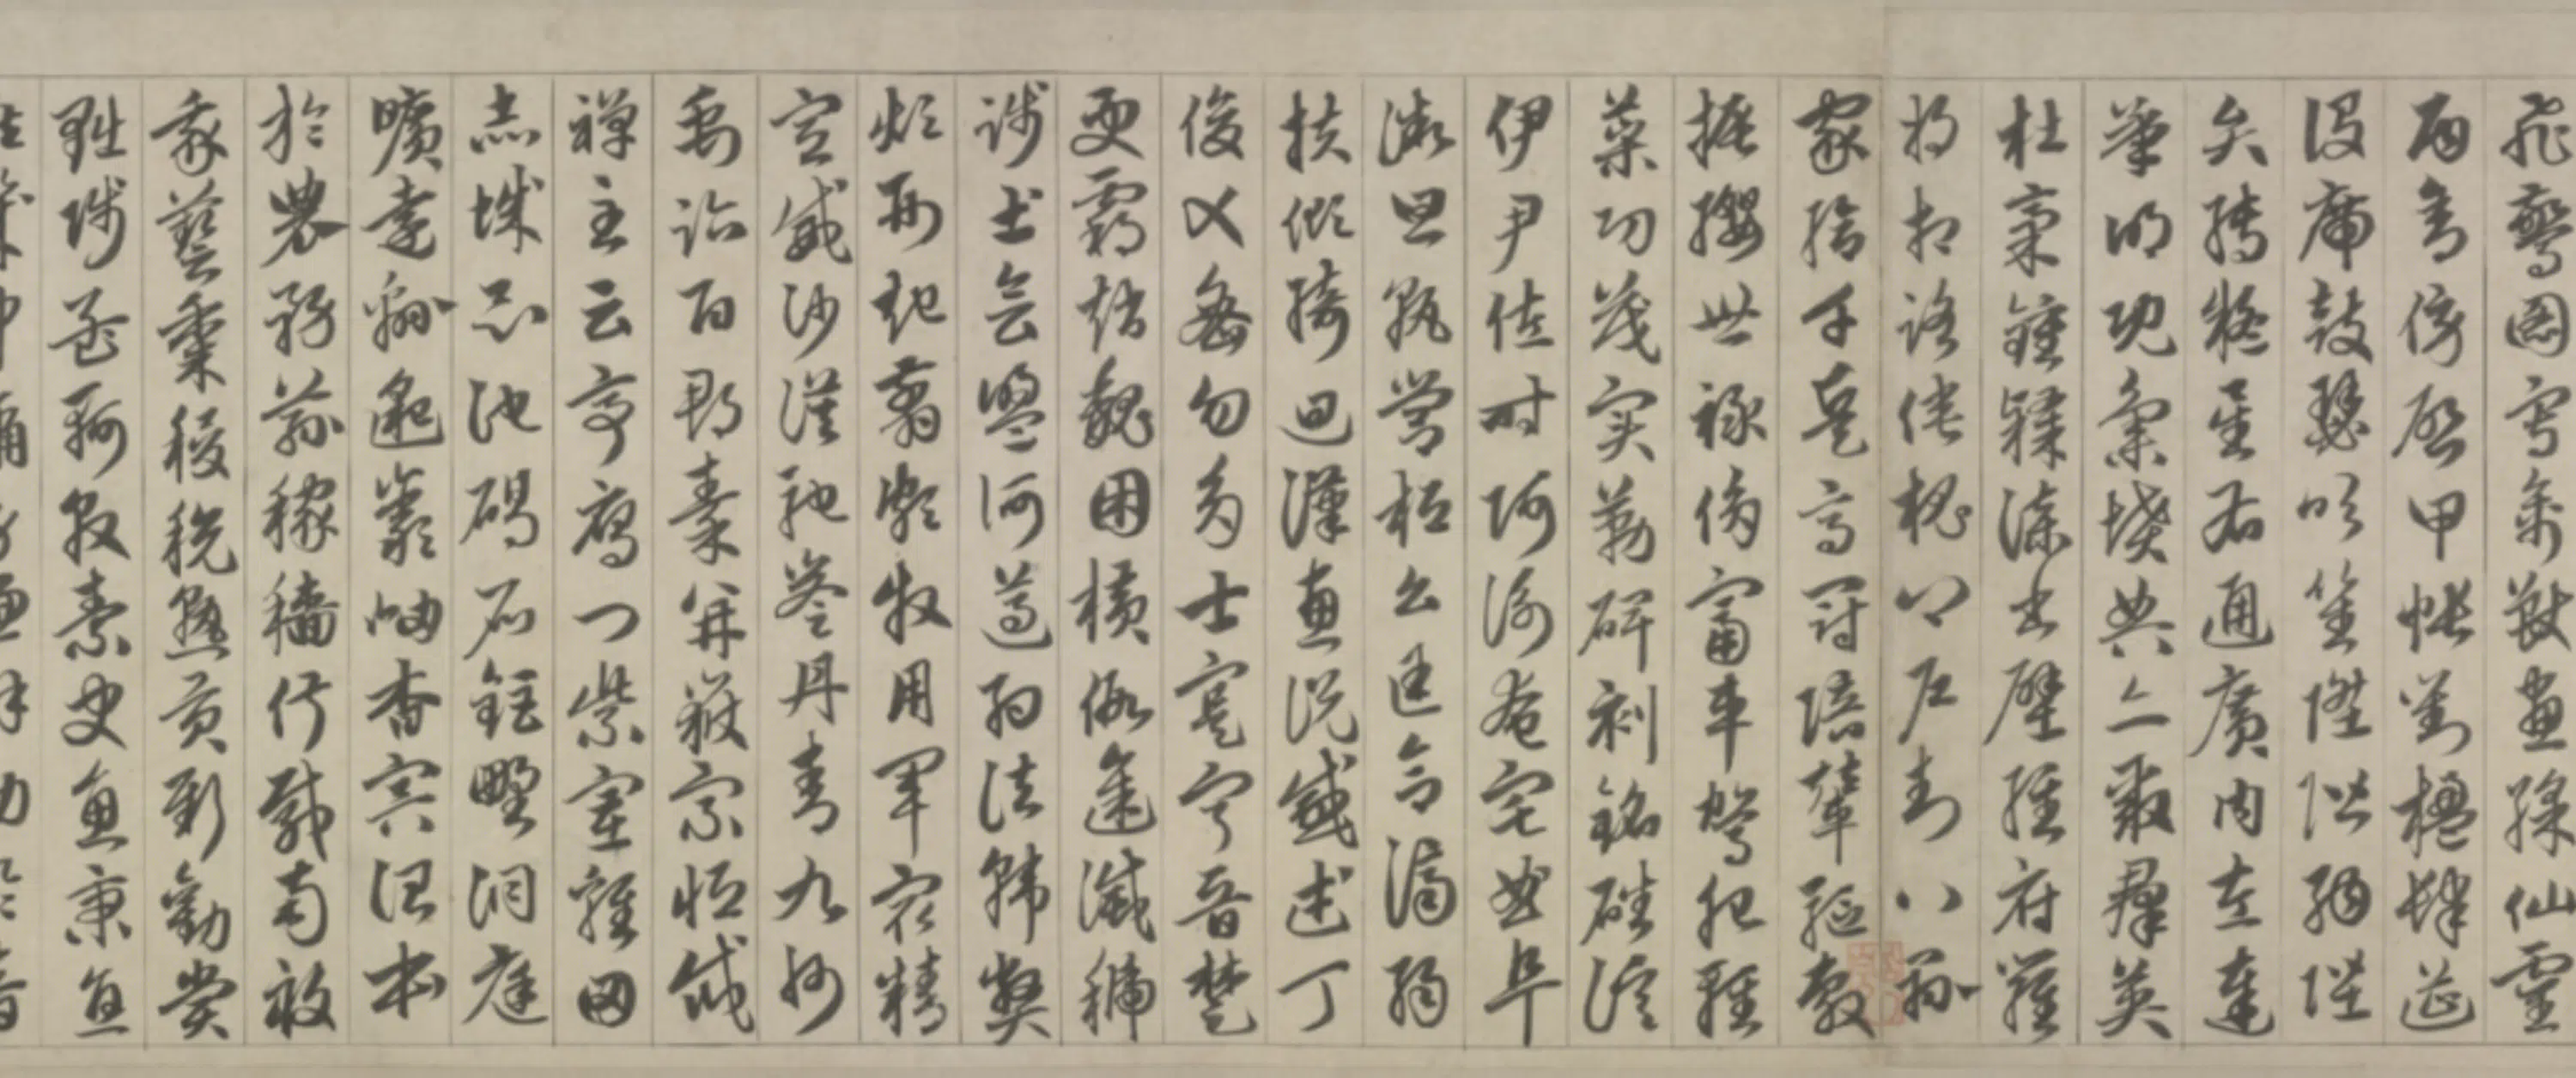 飛驚圖寫禽獸畫綵仙靈
丙舍傍啟甲帳對楹肆筵
設席鼓瑟吹笙陞階納陛
弁轉疑星右通廣內左達
承明既集墳典亦聚群英
杜稾鍾隸漆書壁經府羅
將相路俠槐卿戶封八縣
家給千兵高冠陪輦驅轂
振纓世祿侈富車駕肥輕
策功茂實勒碑刻銘磻溪
伊尹佐時阿衡奄宅曲阜
微旦孰營桓公匡合濟弱
扶傾綺迴漢惠說感武丁
俊乂密勿多士寔寧晉楚
更霸趙魏困橫假途滅虢
踐土會盟何遵約法韓弊
煩刑起翦頗牧用軍最精
宣威沙漠馳譽丹青九州
禹跡百郡秦并嶽宗恒岱
禪主云亭鴈門紫塞雞田
赤城昆池碣石鉅野洞庭
曠遠緜邈巖岫杳冥治本
於農務茲稼穡俶載南畝
我藝黍稷稅熟貢新勸賞
黜陟孟軻敦素史魚秉直